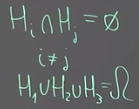 H_i ∩ H_j = ∅
i ≠ j
H_1 ∪ H_2 ∪ H_3 = Ω